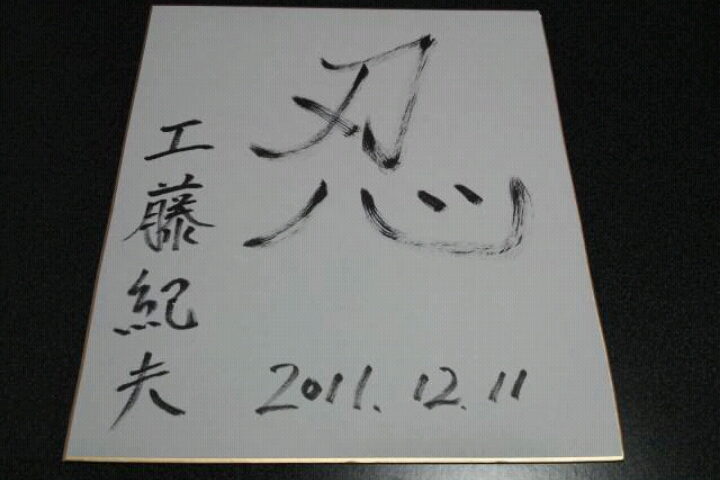 忍
工藤紀夫
2011.12.11